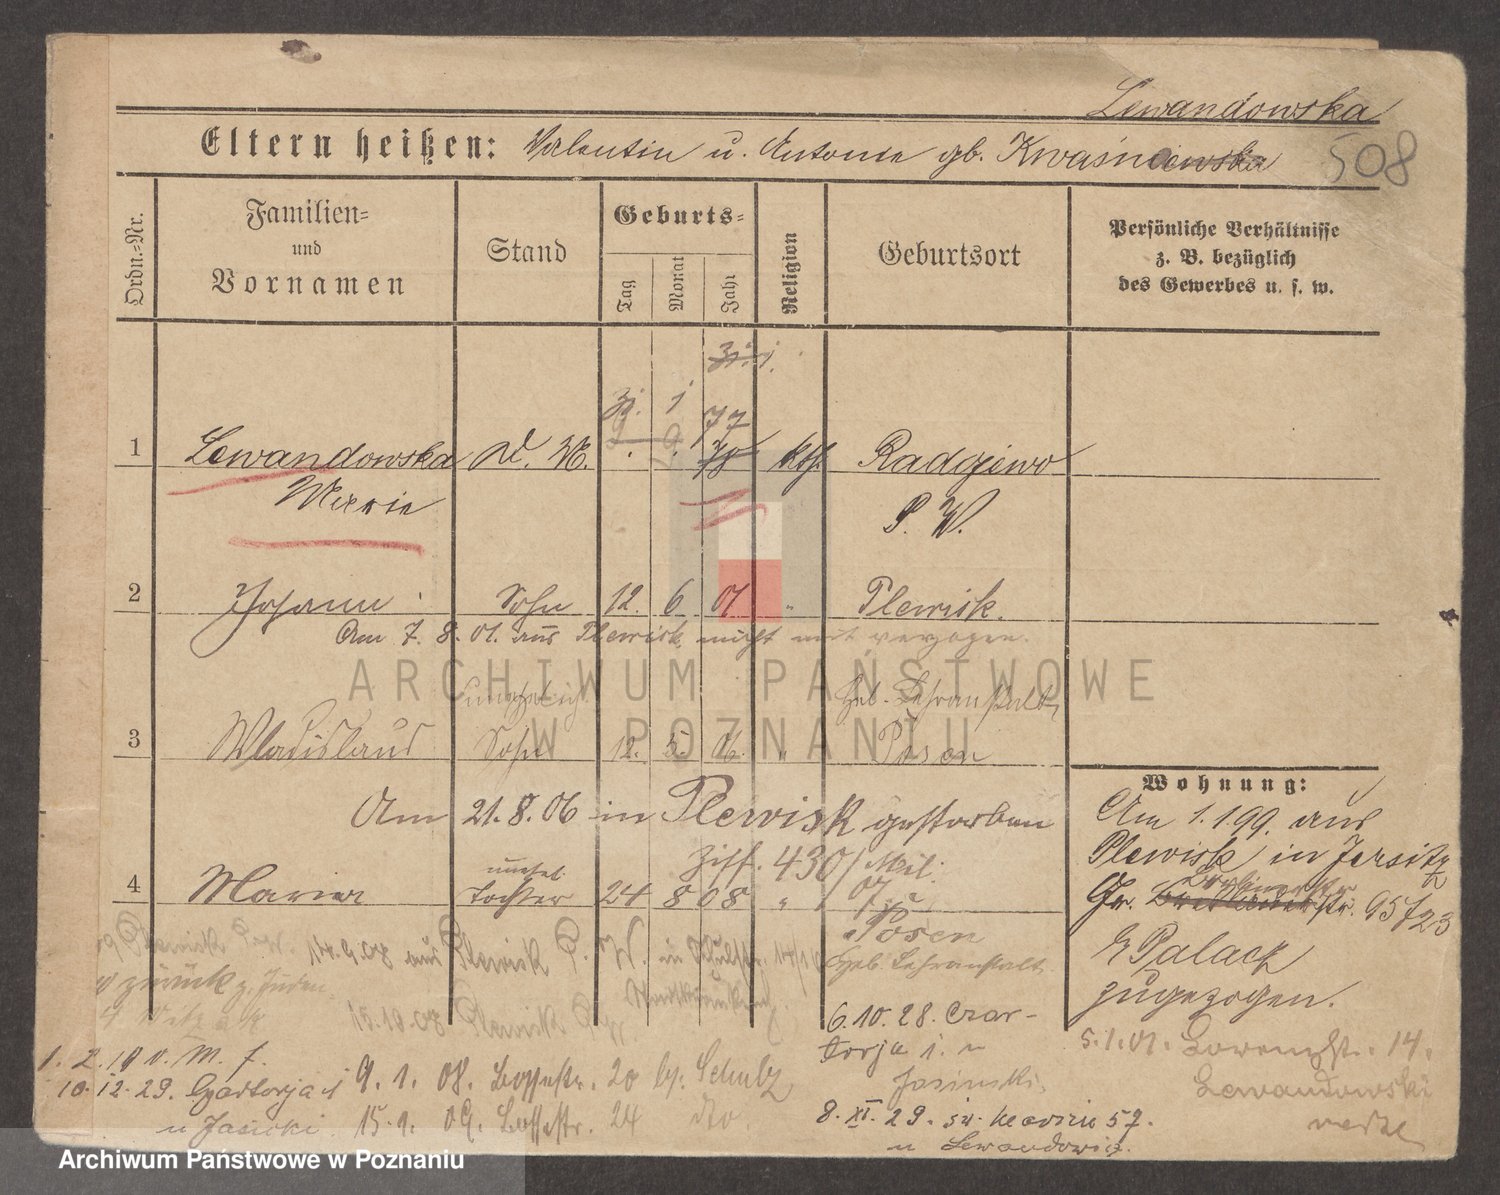 Lewandowska
508
Eltern heißen: Valentin u. Antonie gb. Kwaśniewska
Ordn.-Nr.
Familien-
und
Vornamen
Stand
Geburts-
Tag
Monat
Jahr
Religion
Geburtsort
Persönliche Verhältnisse
z. B. bezüglich
des Gewerbes u. s. w.
77
1 Lewandowska D. M. 9. 9. 78 kth. Radojewo
Marie P. W.
2 Johann Sohn 12. 6 01 " Plewisk.
Am 7. 8. 01. aus Plewisk nicht mit verzogen.
ARCHIWUM PAŃSTWOWE
W POZNANIU
unehelich. Heb. Lehranstalt
3 Wladislaus Sohn 12. 5. 06. " Posen
Am 21. 8. 06 in Plewisk gestorben
Ziff. 430/ Mil.
07
4 Marie unehel. Tochter 24 8 08 " Posen
Heb. Lehranstalt
Wohnung:
Am 1.1.99. aus
Plewisk in Jersitz
Gr. str. 95/23
b/ Palacz
zugezogen.
14.9.08 aus Plewisk P. W. in
zurück z.
15.10.08 Plewisk P. W.
6.10.28. Czar-
torja i. u
Jasinski.
5.1.01. str. 14.
Lewandowski
1. 2.
10. 12. 29. Czartorja 1
u Jasicki.
9. 1. 08. Bossestr. 20 b/. Schulz
15. 9. 09. Bossestr. 24 dto.
8. XI. 29. św. Marcin 57.
u Lewandowicz.
Archiwum Państwowe w Poznaniu